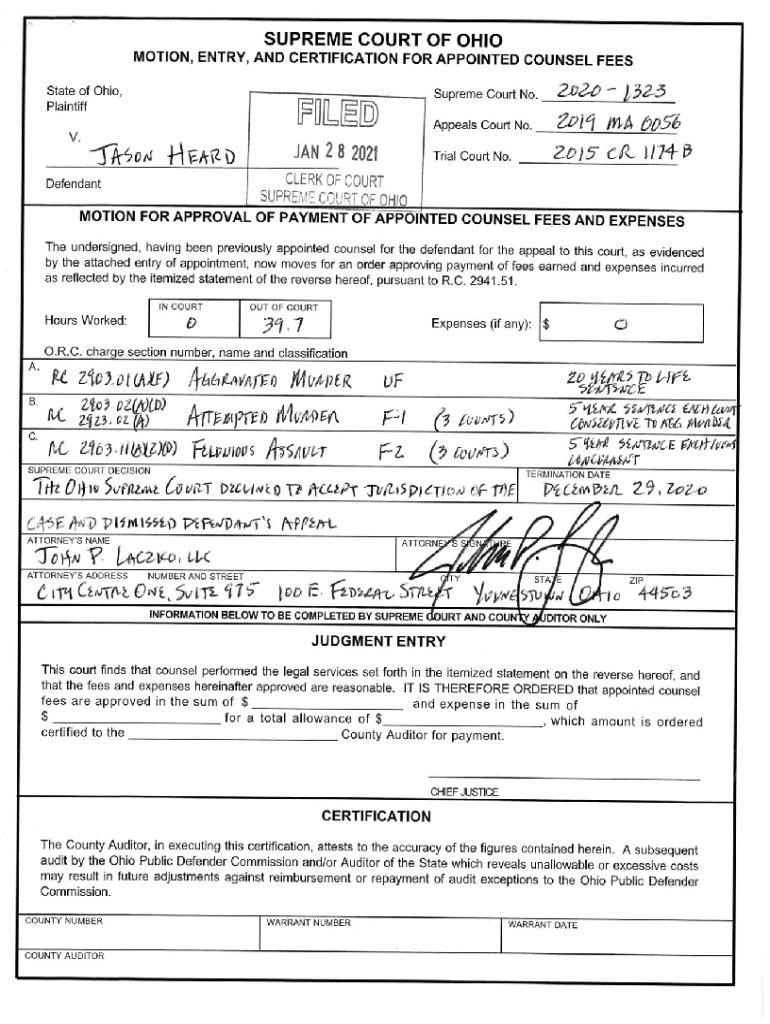 SUPREME COURT OF OHIO
MOTION, ENTRY, AND CERTIFICATION FOR APPOINTED COUNSEL FEES
State of Ohio,
Plaintiff
V.
JASON HEARD
Defendant
FILED
JAN 28 2021
CLERK OF COURT
SUPREME COURT OF OHIO
Supreme Court No. 2020-1323
Appeals Court No. 2019 MA 0056
Trial Court No. 2015 CR 1174 B
MOTION FOR APPROVAL OF PAYMENT OF APPOINTED COUNSEL FEES AND EXPENSES
The undersigned, having been previously appointed counsel for the defendant for the appeal to this court, as evidenced
by the attached entry of appointment, now moves for an order approving payment of fees earned and expenses incurred
as reflected by the itemized statement of the reverse hereof, pursuant to R.C. 2941.51.
Hours Worked: IN COURT 0 OUT OF COURT 39.7 Expenses (if any): $ 0
O.R.C. charge section number, name and classification
A. RC 2903.01(A)(F) AGGRAVATED MURDER UF 20 YEARS TO LIFE
SENTENCE
B. RC 2903.02(A)(D) ATTEMPTED MURDER F-1 (3 COUNTS) 5 YEAR SENTENCE EACH COUNT
2923.02(A) CONSECUTIVE TO AGG. MURDER
C. RC 2903.11(A)(2)(D) FELONIOUS ASSAULT F-2 (3 COUNTS) 5 YEAR SENTENCE EACH COUNT
CONCURRENT
SUPREME COURT DECISION TERMINATION DATE
THE OHIO SUPREME COURT DECLINED TO ACCEPT JURISDICTION OF THE DECEMBER 29, 2020
CASE AND DISMISSED DEFENDANT'S APPEAL
ATTORNEY'S NAME ATTORNEY'S SIGNATURE
JOHN P. LACZKO, LLC
ATTORNEY'S ADDRESS NUMBER AND STREET CITY STATE ZIP
CITY CENTRE ONE, SUITE 975 100 E. FEDERAL STREET YOUNGSTOWN OHIO 44503
INFORMATION BELOW TO BE COMPLETED BY SUPREME COURT AND COUNTY AUDITOR ONLY
JUDGMENT ENTRY
This court finds that counsel performed the legal services set forth in the itemized statement on the reverse hereof, and
that the fees and expenses hereinafter approved are reasonable. IT IS THEREFORE ORDERED that appointed counsel
fees are approved in the sum of $ and expense in the sum of
$ for a total allowance of $ , which amount is ordered
certified to the County Auditor for payment.
CHIEF JUSTICE
CERTIFICATION
The County Auditor, in executing this certification, attests to the accuracy of the figures contained herein. A subsequent
audit by the Ohio Public Defender Commission and/or Auditor of the State which reveals unallowable or excessive costs
may result in future adjustments against reimbursement or repayment of audit exceptions to the Ohio Public Defender
Commission.
COUNTY NUMBER WARRANT NUMBER WARRANT DATE
COUNTY AUDITOR